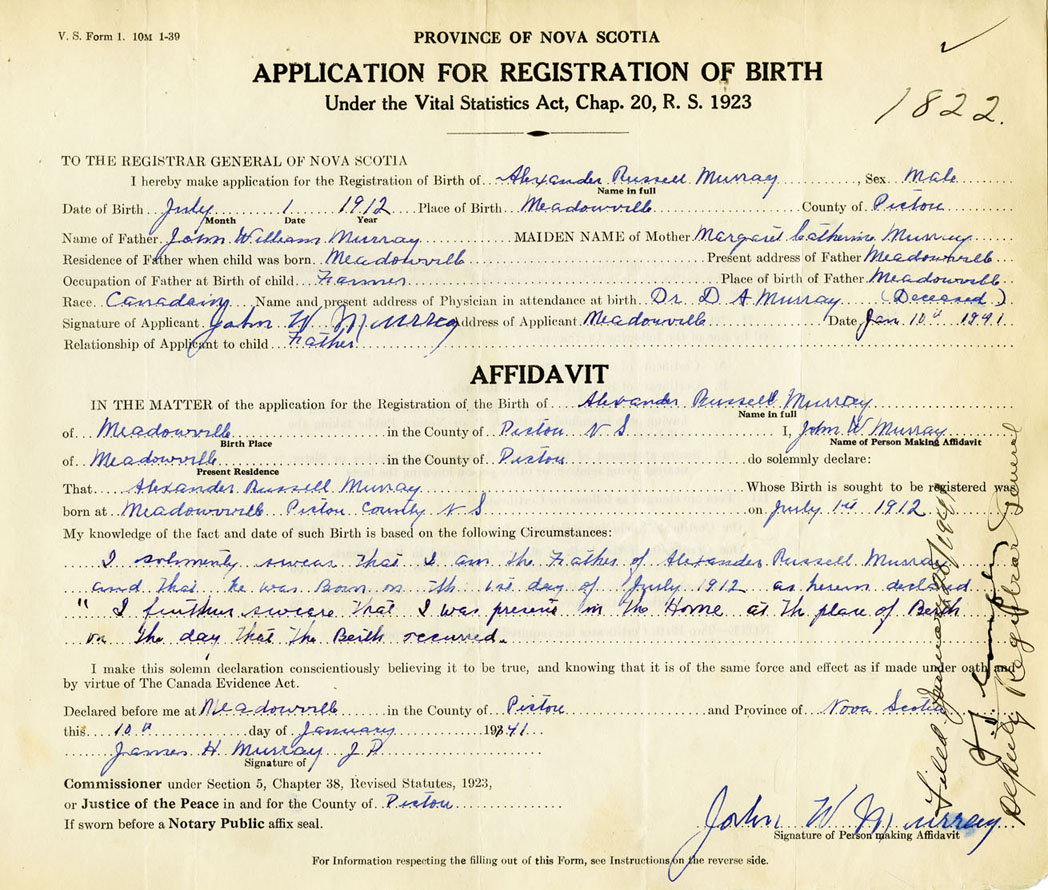 V. S. Form 1. 10M 1-39
PROVINCE OF NOVA SCOTIA
APPLICATION FOR REGISTRATION OF BIRTH
Under the Vital Statistics Act, Chap. 20, R. S. 1923
1822.
TO THE REGISTRAR GENERAL OF NOVA SCOTIA
I hereby make application for the Registration of Birth of Alexander Russell Murray, Sex Male
Name in full
Date of Birth July 1 1912 Place of Birth Meadowville County of Pictou
Month Date Year
Name of Father John William Murray MAIDEN NAME of Mother Margaret Catherine Murray
Residence of Father when child was born Meadowville Present address of Father Meadowville
Occupation of Father at Birth of child Farmer Place of birth of Father Meadowville
Race Canadain Name and present address of Physician in attendance at birth Dr. D A Murray (Deceased)
Signature of Applicant John W Murray Address of Applicant Meadowville Date Jan 10th 1941
Relationship of Applicant to child Father
AFFIDAVIT
IN THE MATTER of the application for the Registration of the Birth of Alexander Russell Murray
Name in full
of Meadowville in the County of Pictou N S I, John W Murray
Birth Place Name of Person Making Affidavit
of Meadowville in the County of Pictou do solemnly declare:
Present Residence
That Alexander Russell Murray Whose Birth is sought to be registered was
born at Meadowville Pictou County N S on July 1st 1912
My knowledge of the fact and date of such Birth is based on the following Circumstances:
I solmenty swear that I am the Father of Alexander Russell Murray
and that he was Born on th 1st day of July 1912 as herein declared
" I further sweare that I was present in the Home at th place of Berth
on the day that the Berth occurred.
I make this solemn declaration conscientiously believing it to be true, and knowing that it is of the same force and effect as if made under oath and
by virtue of The Canada Evidence Act.
Declared before me at Meadowville in the County of Pictou and Province of Nova Scotia
this 10th day of January 1941
James H Murray J P
Signature of
Commissioner under Section 5, Chapter 38, Revised Statutes, 1923,
or Justice of the Peace in and for the County of Pictou
If sworn before a Notary Public affix seal.
John W Murray
Signature of Person making Affidavit
For Information respecting the filling out of this Form, see Instructions on the reverse side.
Filed January 20/1941
Deputy Registrar General